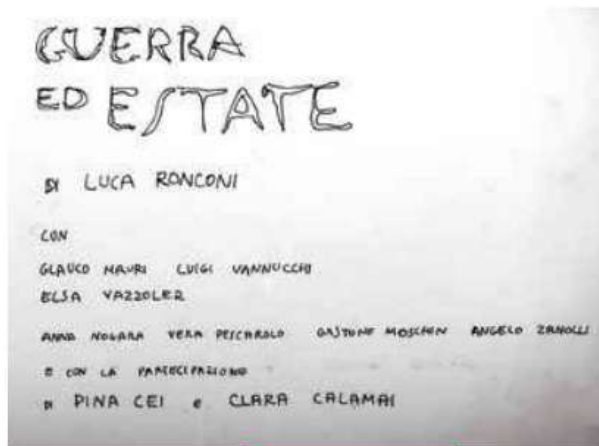 GUERRA
ED ESTATE
DI LUCA RONCONI
CON
GLAUCO MAURI LUIGI VANNUCCHI
ELSA VAZZOLER
ANNA NOGARA VERA PESCAROLO GASTONE MOSCHIN ANGELO ZANOLLI
E CON LA PARTECIPAZIONE
DI PINA CEI e CLARA CALAMAI